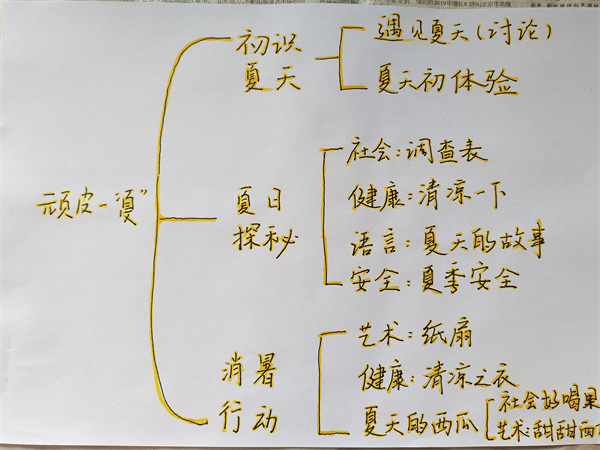 初识
夏天
遇见夏天(讨论)
夏天初体验
顽皮一"夏"
夏日
探秘
社会:调查表
健康:清凉一下
语言:夏天的故事
安全:夏季安全
消暑
行动
艺术:纸扇
健康:清凉之衣
夏天的西瓜
社会好喝果
艺术:甜甜西